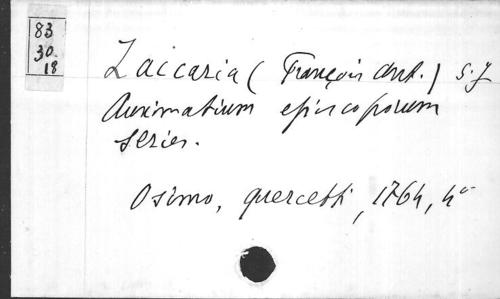 83
30.
18
Zaccaria (François Ant.) S.J
Auximatium episcoporum
series.
Osimo, quercetti, 1764, 4°